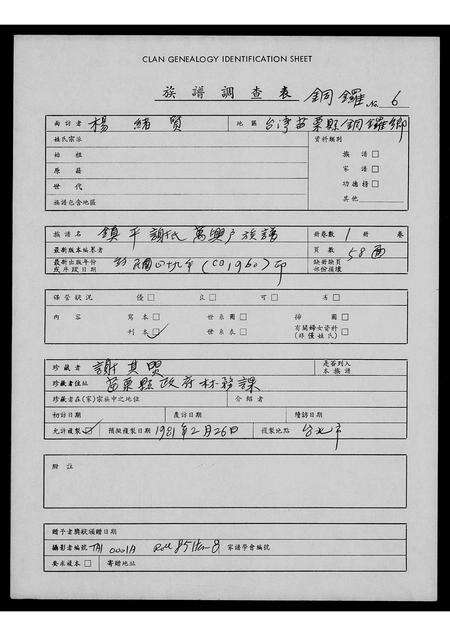 CLAN GENEALOGY IDENTIFICATION SHEET
族譜調查表 銅鑼 No. 6
面訪者 楊緒賢 地區 台灣苗栗縣銅鑼鄉
姓氏宗派 資料類別
始祖 族譜 □
原籍 家譜 □
世代 功德榜 □
族譜包含地區 其他
族譜名 鎮平謝氏萬興戶族譜 卷數 1 冊 卷
最新版本編纂者 頁數 58面
最新出版年份或年段日期 民國四九年 (CO1960) 印 缺前缺頁部份損壞
保管狀況 優 □ 良 □ 可 □ 劣 □
內容 寫本 □ 世系圖 □ 掃圖 □
刊本 世系表 □ 有關婦女資料 □
(非僅姓氏)
珍藏者 謝其賢 是否列入本族譜
珍藏者住址 苗栗縣政府財務課
珍藏者在(家)宗族中之地位 介紹者
初訪日期 複訪日期 續訪日期
允許複製 預擬複製日期 1981年2月26日 複製地點 台北市
附註
贈予者獎狀頒贈日期
攝影者編號 TM 0001A Roll 85 Item 8 家譜學會編號
要求複本 □ 寄贈地址